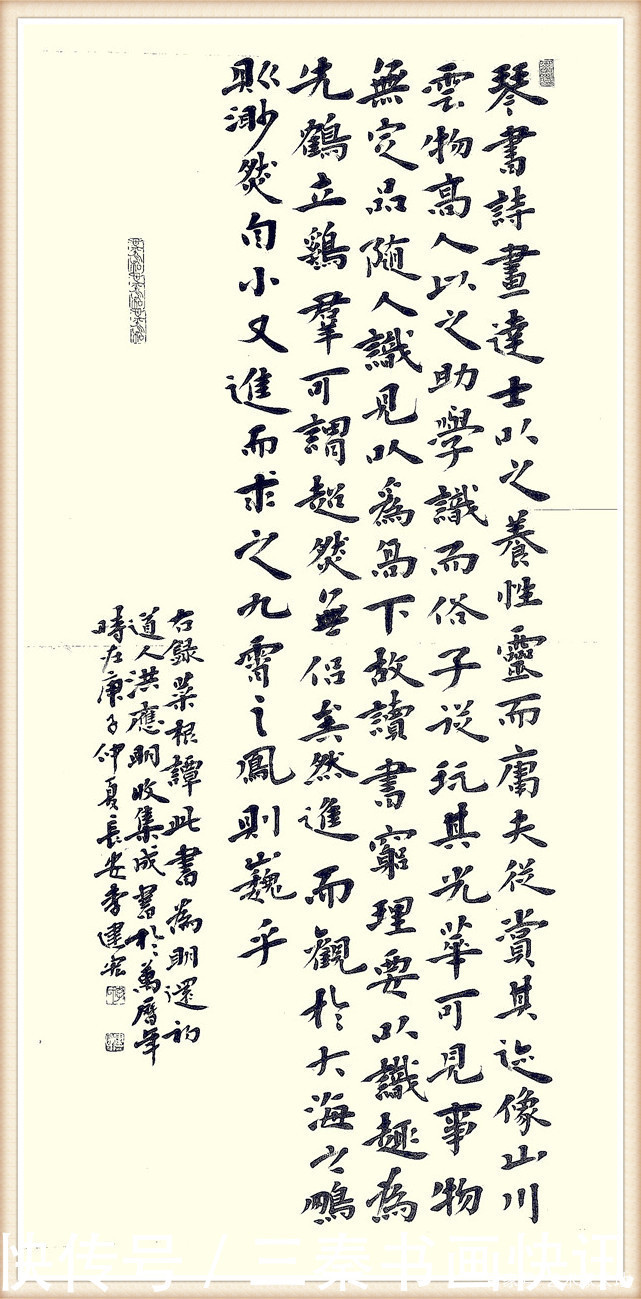 琴書詩畫達士以之養性靈而庸夫從賞其迹像山川
雲物高人以之助學識而俗子從玩其光華可見事物
無定品隨人識見以爲高下故讀書窮理要以識趣為
先鶴立鷄羣可謂超然無侣矣然進而觀於大海之鵬
則渺然自小又進而求之九霄之鳳則巍乎
右録菜根譚此書為明還初
道人洪應明收集成書於萬曆年
時在庚子仲夏長安李建宏
快传号 / 三秦书画快讯